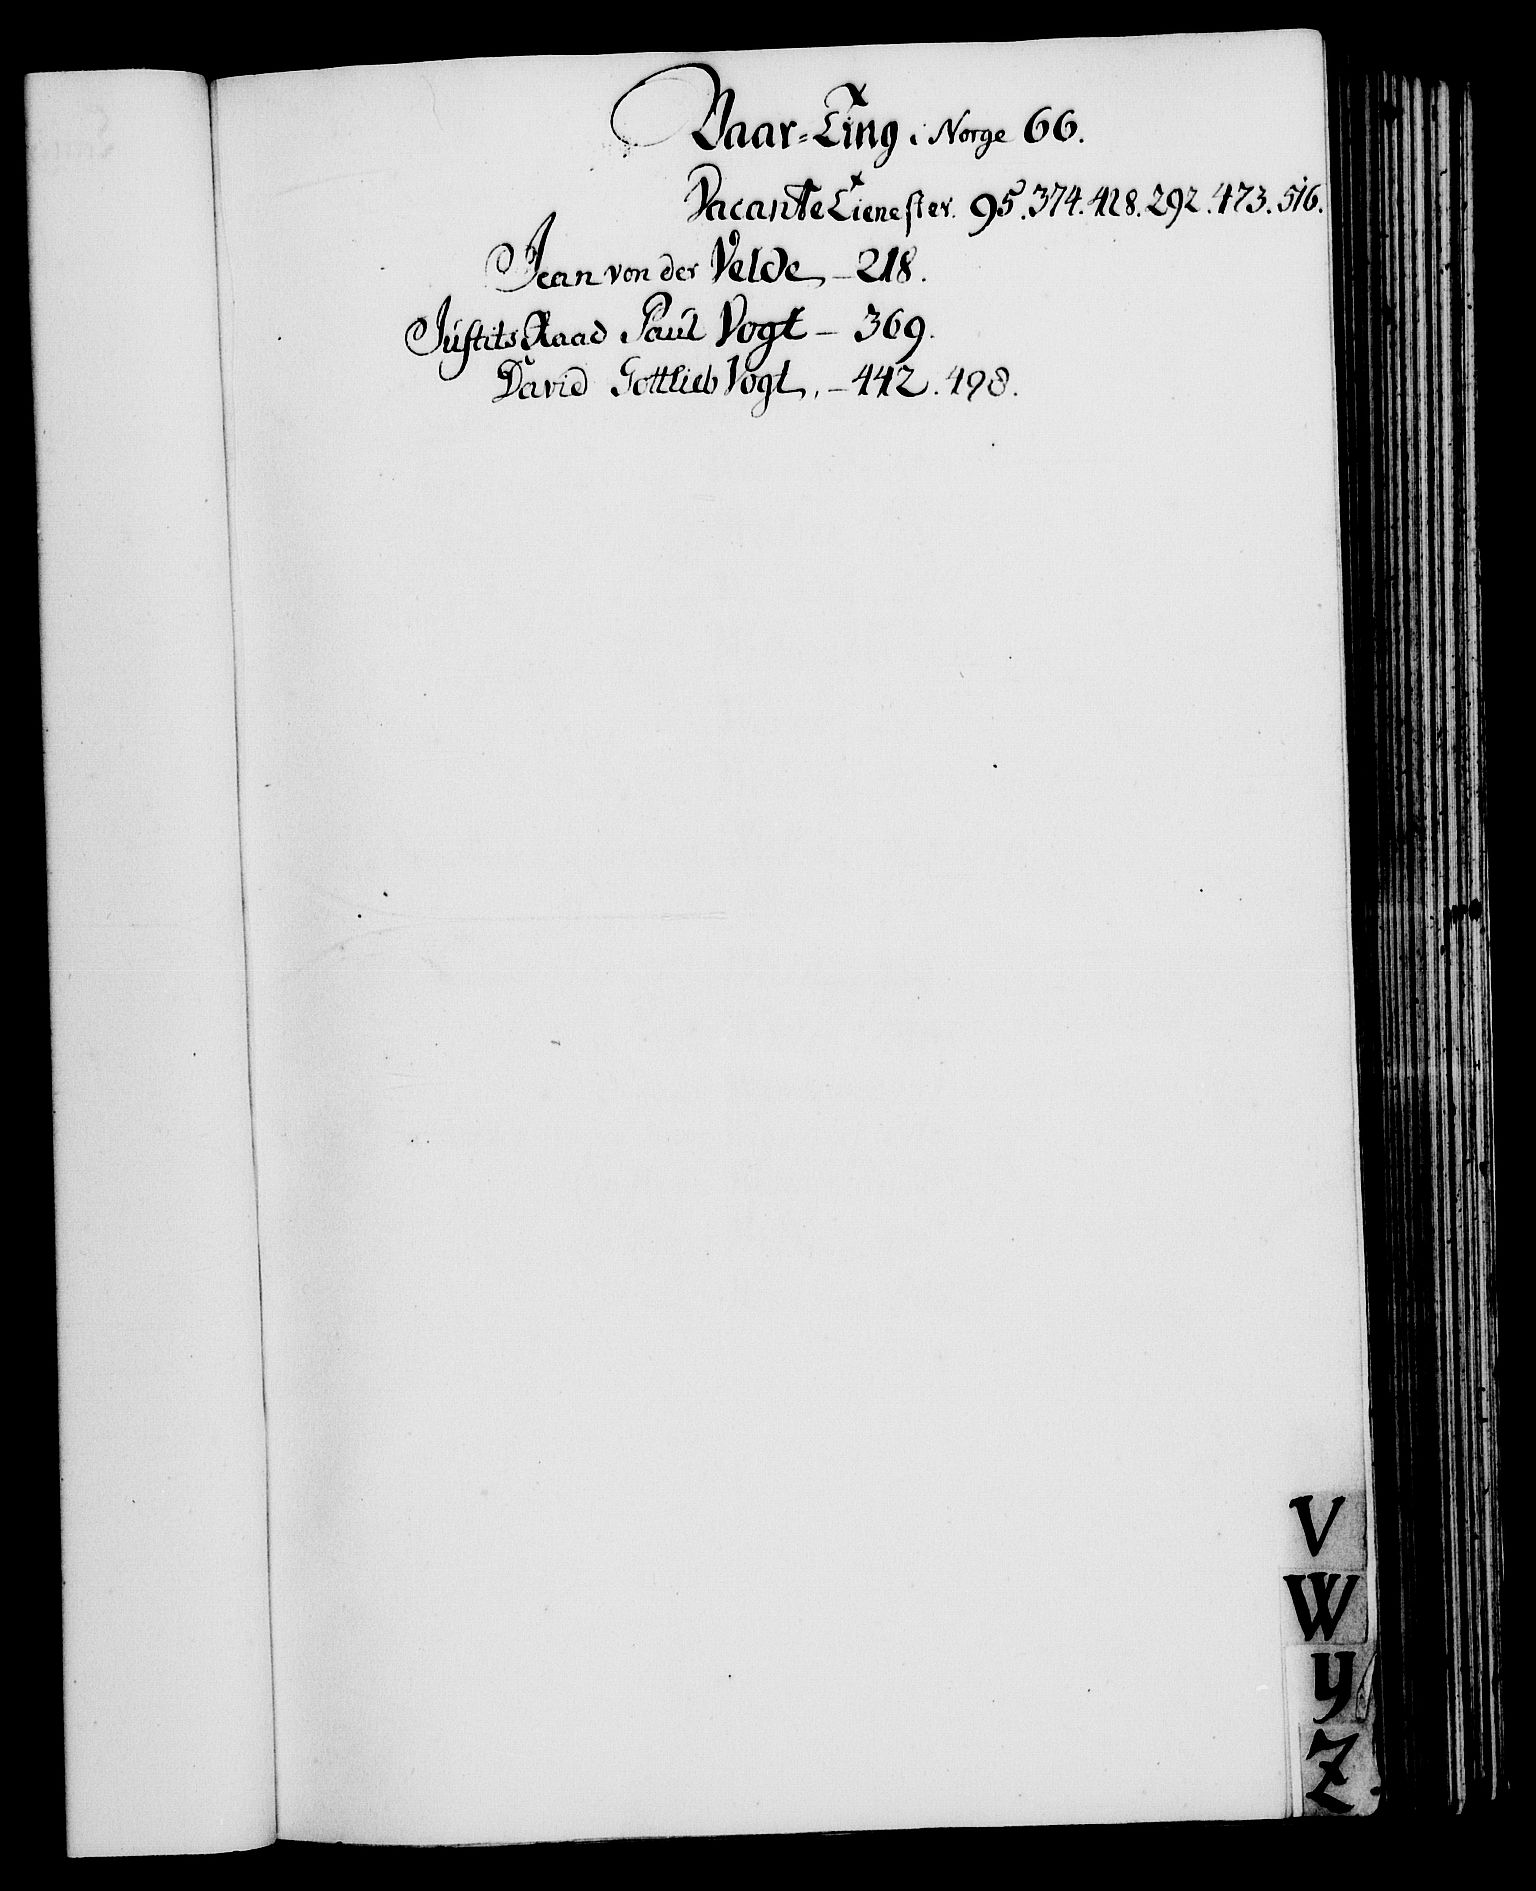 Vaar-Ting i Norge 66.
Vacante Tienester. 95. 374. 428. 292. 473. 516.
Jean von der Velde – 218.
Justits Raad Paul Vogt – 369.
David Gottlieb Vogt, – 442. 498.
V
W
Y
Z